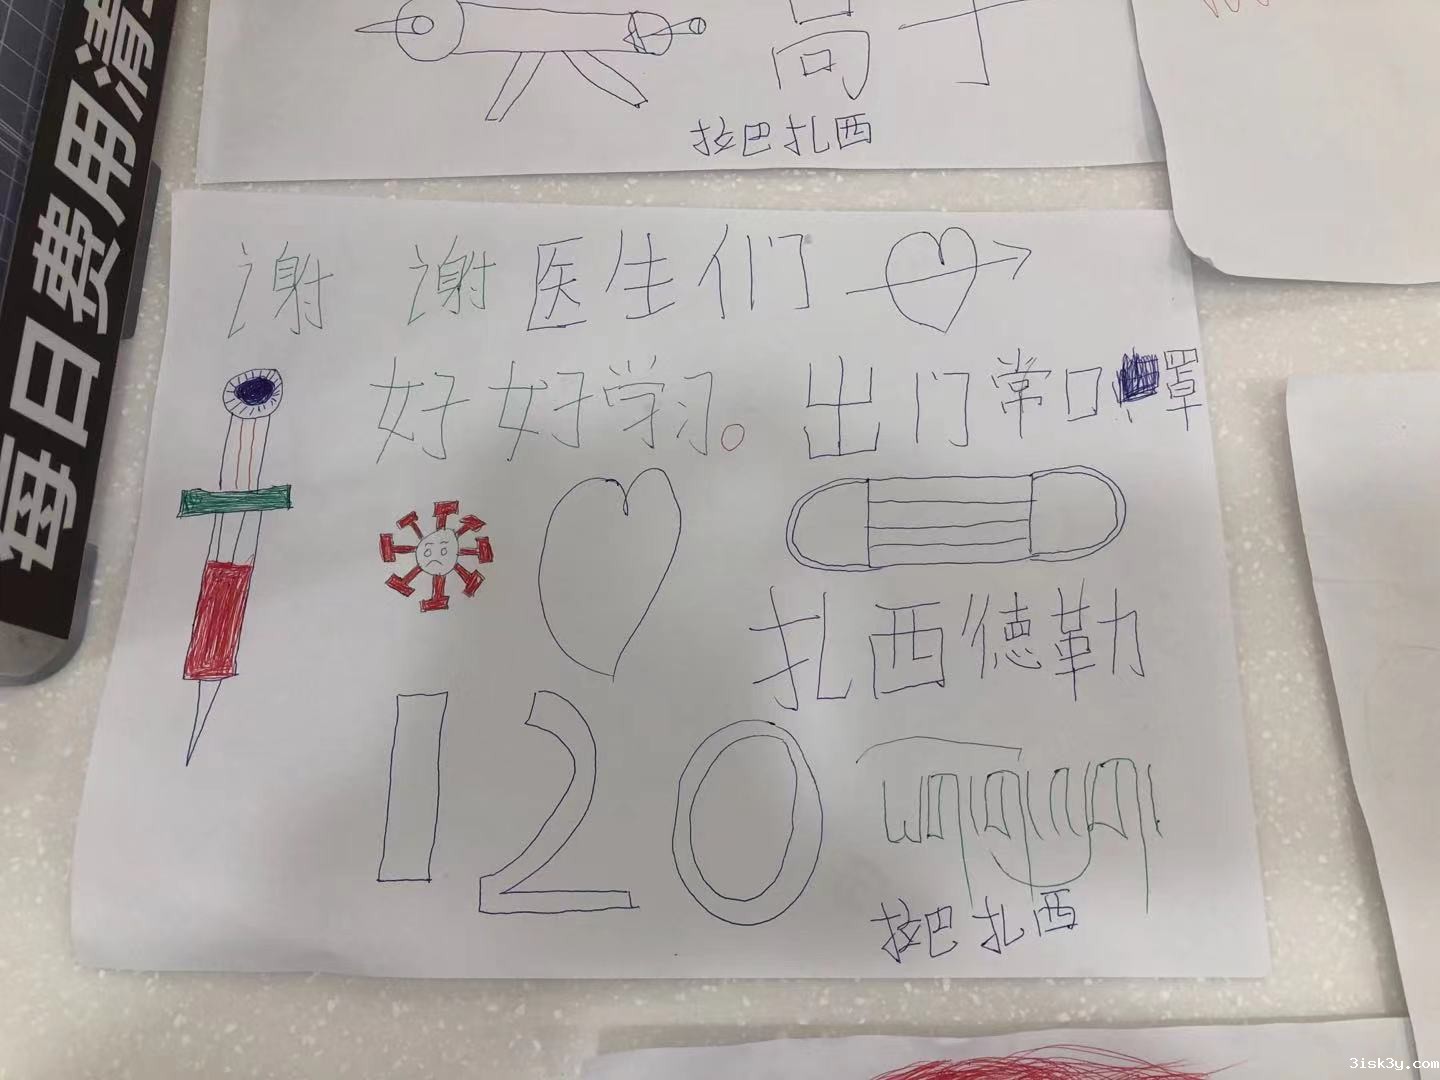 高于
拉巴扎西
每日费用清
谢谢医生们
好好学习。出门常口罩
扎西德勒
120
拉巴扎西
3isk3y.com